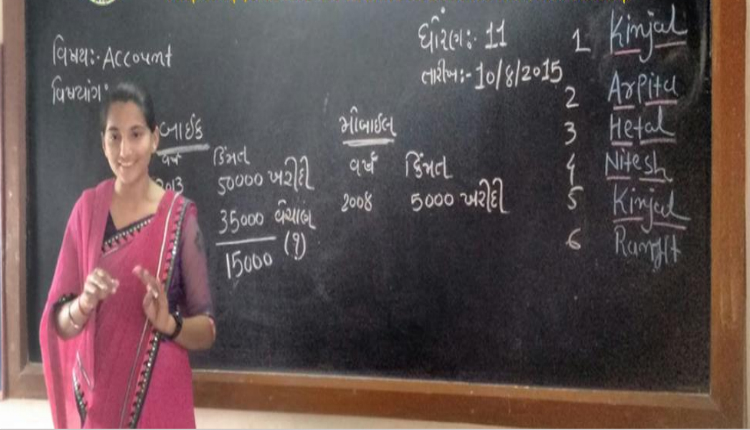 વિષય:- Account
વિષયાંગ:-
ધોરણ:- 11
તારીખ:- 10/8/2015
બાઈક
વર્ષ કિંમત
2013 50000 ખરીદી
35000 વેચાણ
15000 (?)
મોબાઈલ
વર્ષ કિંમત
2008 5000 ખરીદી
1 Kinjal
2 Arpita
3 Hetal
4 Nitesh
5 Kinjal
6 Ranjit